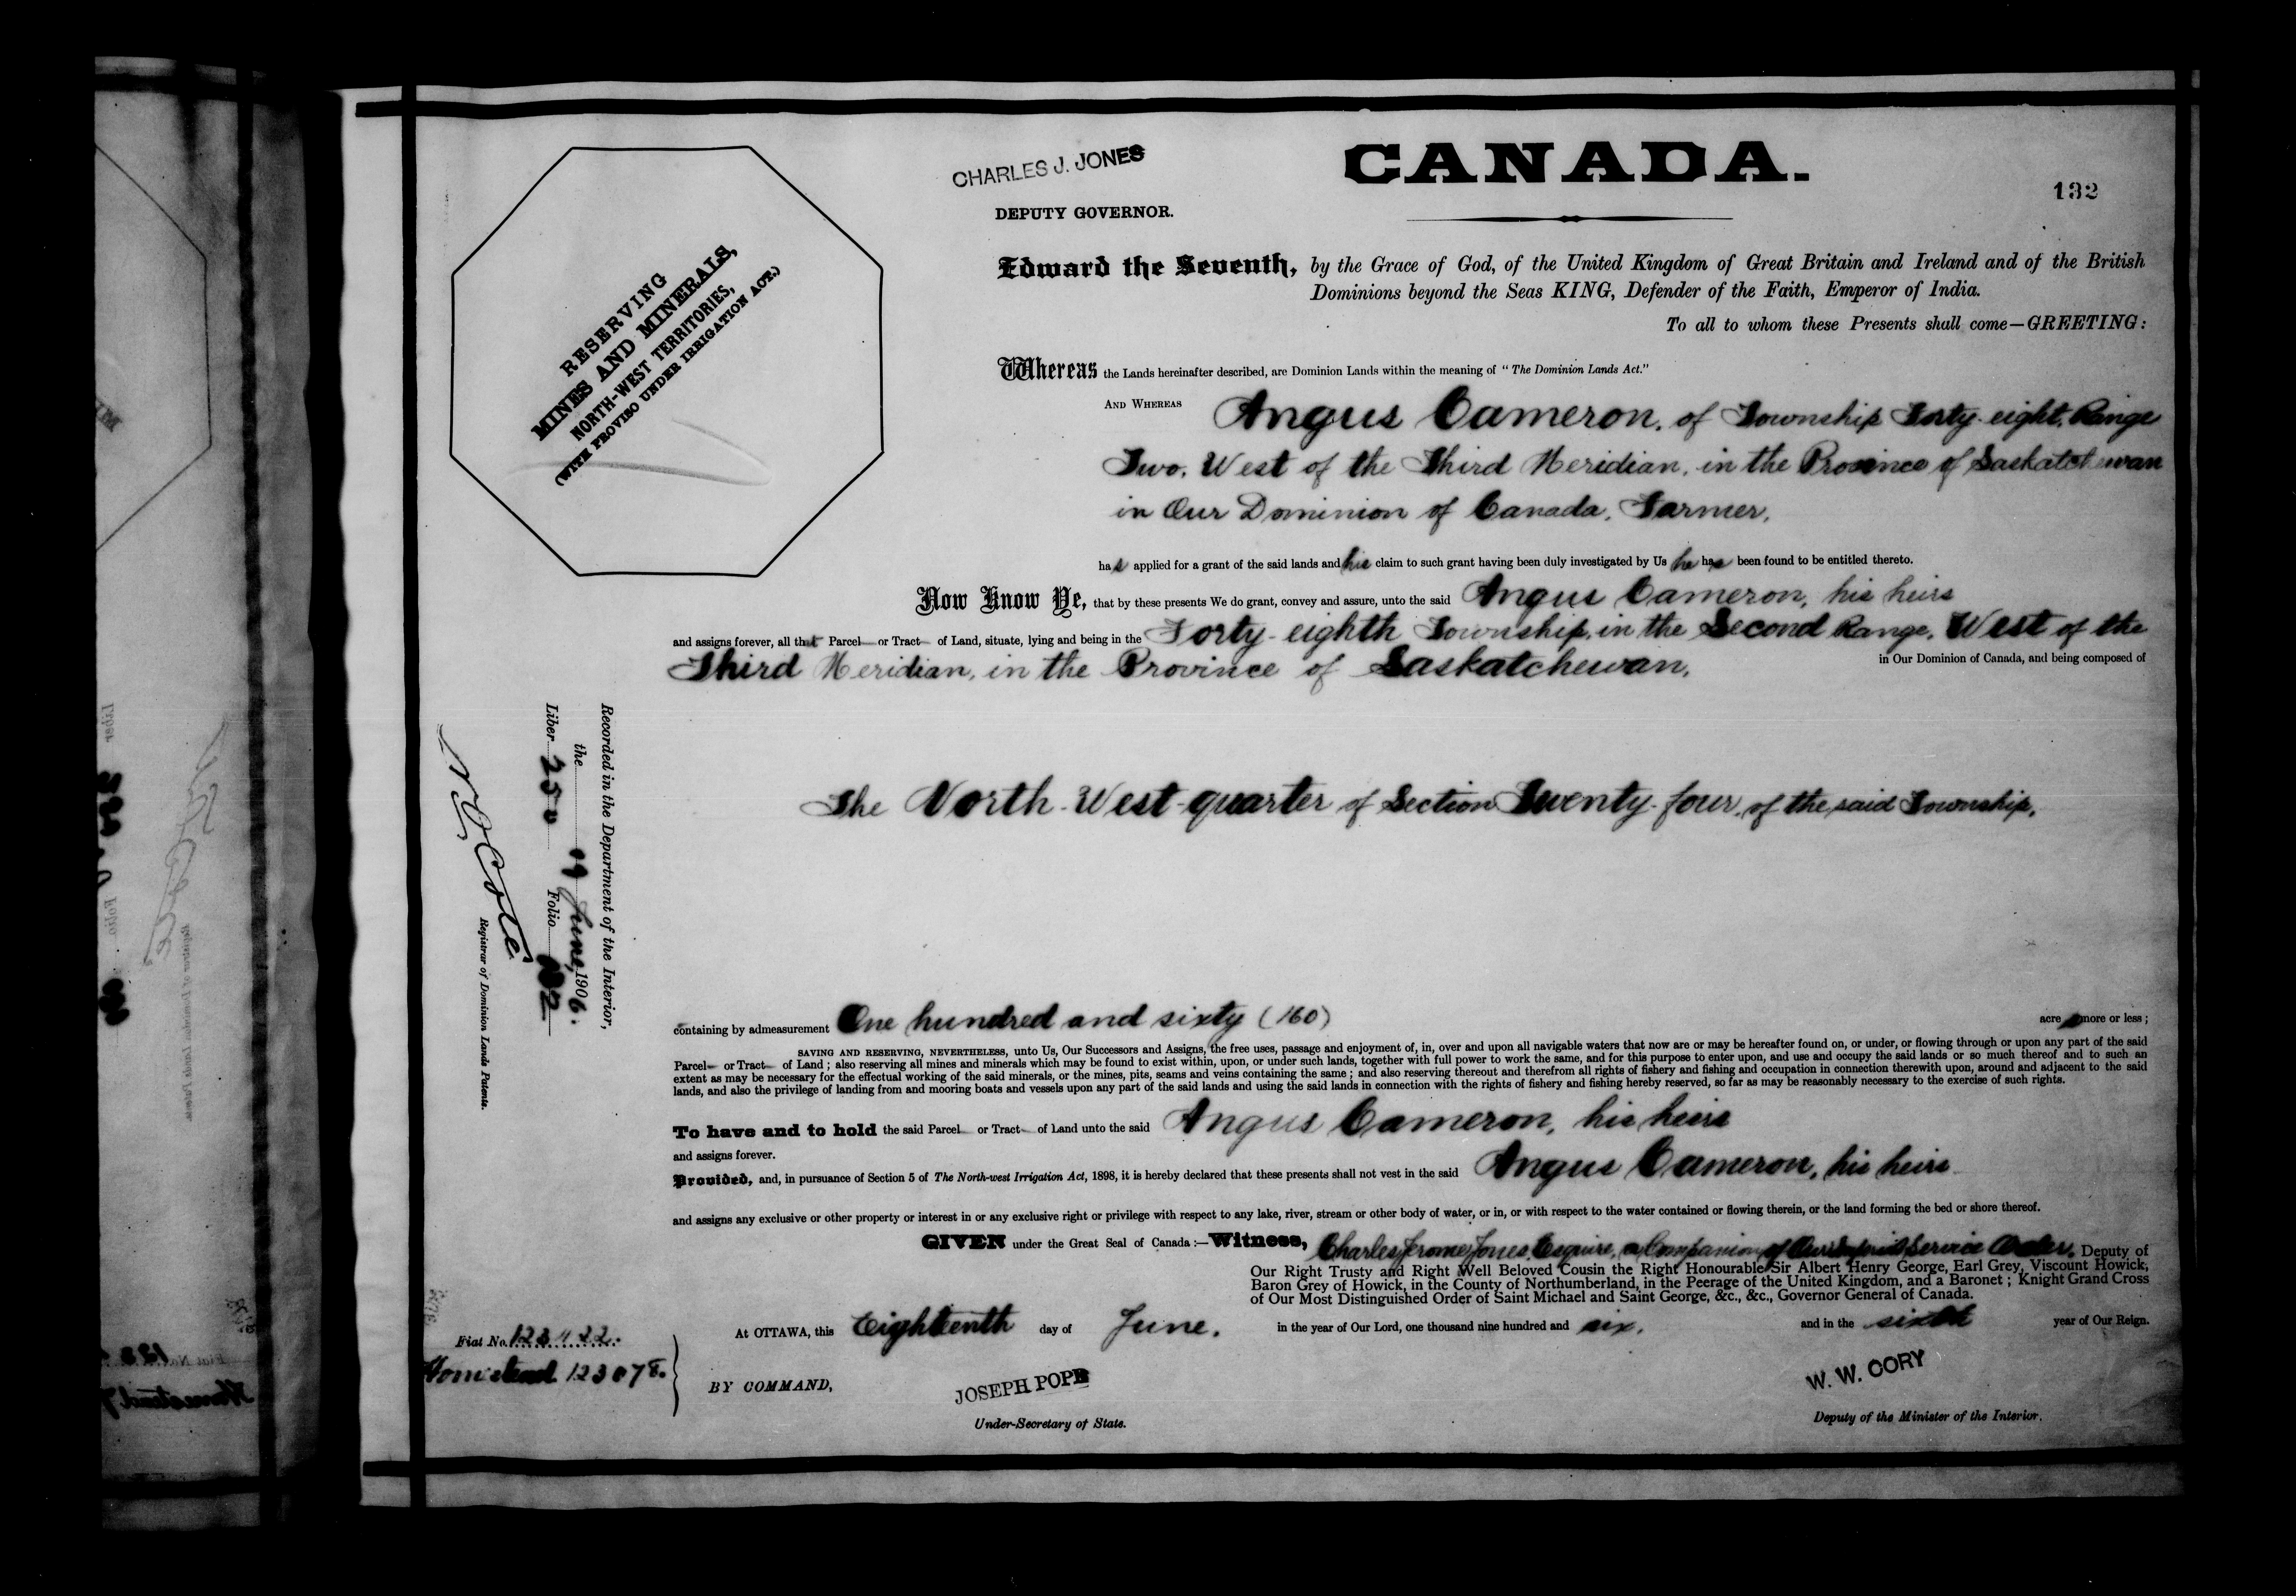 CHARLES J. JONES
DEPUTY GOVERNOR.
CANADA.
132
RESERVING
MINES AND MINERALS,
NORTH-WEST TERRITORIES,
(WITH PROVISO UNDER IRRIGATION ACT.)
Edward the Seventh, by the Grace of God, of the United Kingdom of Great Britain and Ireland and of the British
Dominions beyond the Seas KING, Defender of the Faith, Emperor of India.
To all to whom these Presents shall come—GREETING:
Whereas the Lands hereinafter described, are Dominion Lands within the meaning of "The Dominion Lands Act."
AND WHEREAS Angus Cameron, of Township Forty-eight, Range
Two, West of the Third Meridian, in the Province of Saskatchewan
in Our Dominion of Canada, Farmer,
has applied for a grant of the said lands and his claim to such grant having been duly investigated by Us he has been found to be entitled thereto.
Now Know Ye, that by these presents We do grant, convey and assure, unto the said Angus Cameron, his heirs
and assigns forever, all that Parcel or Tract of Land, situate, lying and being in the Forty-eighth Township, in the Second Range, West of the
Third Meridian, in the Province of Saskatchewan, in Our Dominion of Canada, and being composed of
The North-West-quarter of Section Twenty-four, of the said Township,
Recorded in the Department of the Interior,
the 19 June, 1906.
Liber 250 Folio 132
N O Coté
Registrar of Dominion Lands Patents.
containing by admeasurement One hundred and sixty (160) acre more or less;
SAVING AND RESERVING, NEVERTHELESS, unto Us, Our Successors and Assigns, the free uses, passage and enjoyment of, in, over and upon all navigable waters that now are or may be hereafter found on, or under, or flowing through or upon any part of the said
Parcel or Tract of Land; also reserving all mines and minerals which may be found to exist within, upon, or under such lands, together with full power to work the same, and for this purpose to enter upon, and use and occupy the said lands or so much thereof and to such an
extent as may be necessary for the effectual working of the said minerals, or the mines, pits, seams and veins containing the same; and also reserving thereout and therefrom all rights of fishery and fishing and occupation in connection therewith upon, around and adjacent to the said
lands, and also the privilege of landing from and mooring boats and vessels upon any part of the said lands and using the said lands in connection with the rights of fishery and fishing hereby reserved, so far as may be reasonably necessary to the exercise of such rights.
To have and to hold the said Parcel or Tract of Land unto the said Angus Cameron, his heirs
and assigns forever.
Provided, and, in pursuance of Section 5 of The North-west Irrigation Act, 1898, it is hereby declared that these presents shall not vest in the said Angus Cameron, his heirs
and assigns any exclusive or other property or interest in or any exclusive right or privilege with respect to any lake, river, stream or other body of water, or in, or with respect to the water contained or flowing therein, or the land forming the bed or shore thereof.
GIVEN under the Great Seal of Canada:—Witness, Charles Jerome Jones, Esquire, a Companion of Our Imperial Service Order, Deputy of
Our Right Trusty and Right Well Beloved Cousin the Right Honourable Sir Albert Henry George, Earl Grey, Viscount Howick,
Baron Grey of Howick, in the County of Northumberland, in the Peerage of the United Kingdom, and a Baronet; Knight Grand Cross
of Our Most Distinguished Order of Saint Michael and Saint George, &c., &c., Governor General of Canada.
At OTTAWA, this Eighteenth day of June, in the year of Our Lord, one thousand nine hundred and six, and in the sixth year of Our Reign.
Fiat No.
Homestead
BY COMMAND,
JOSEPH POPE
Under-Secretary of State.
W. W. CORY
Deputy of the Minister of the Interior.